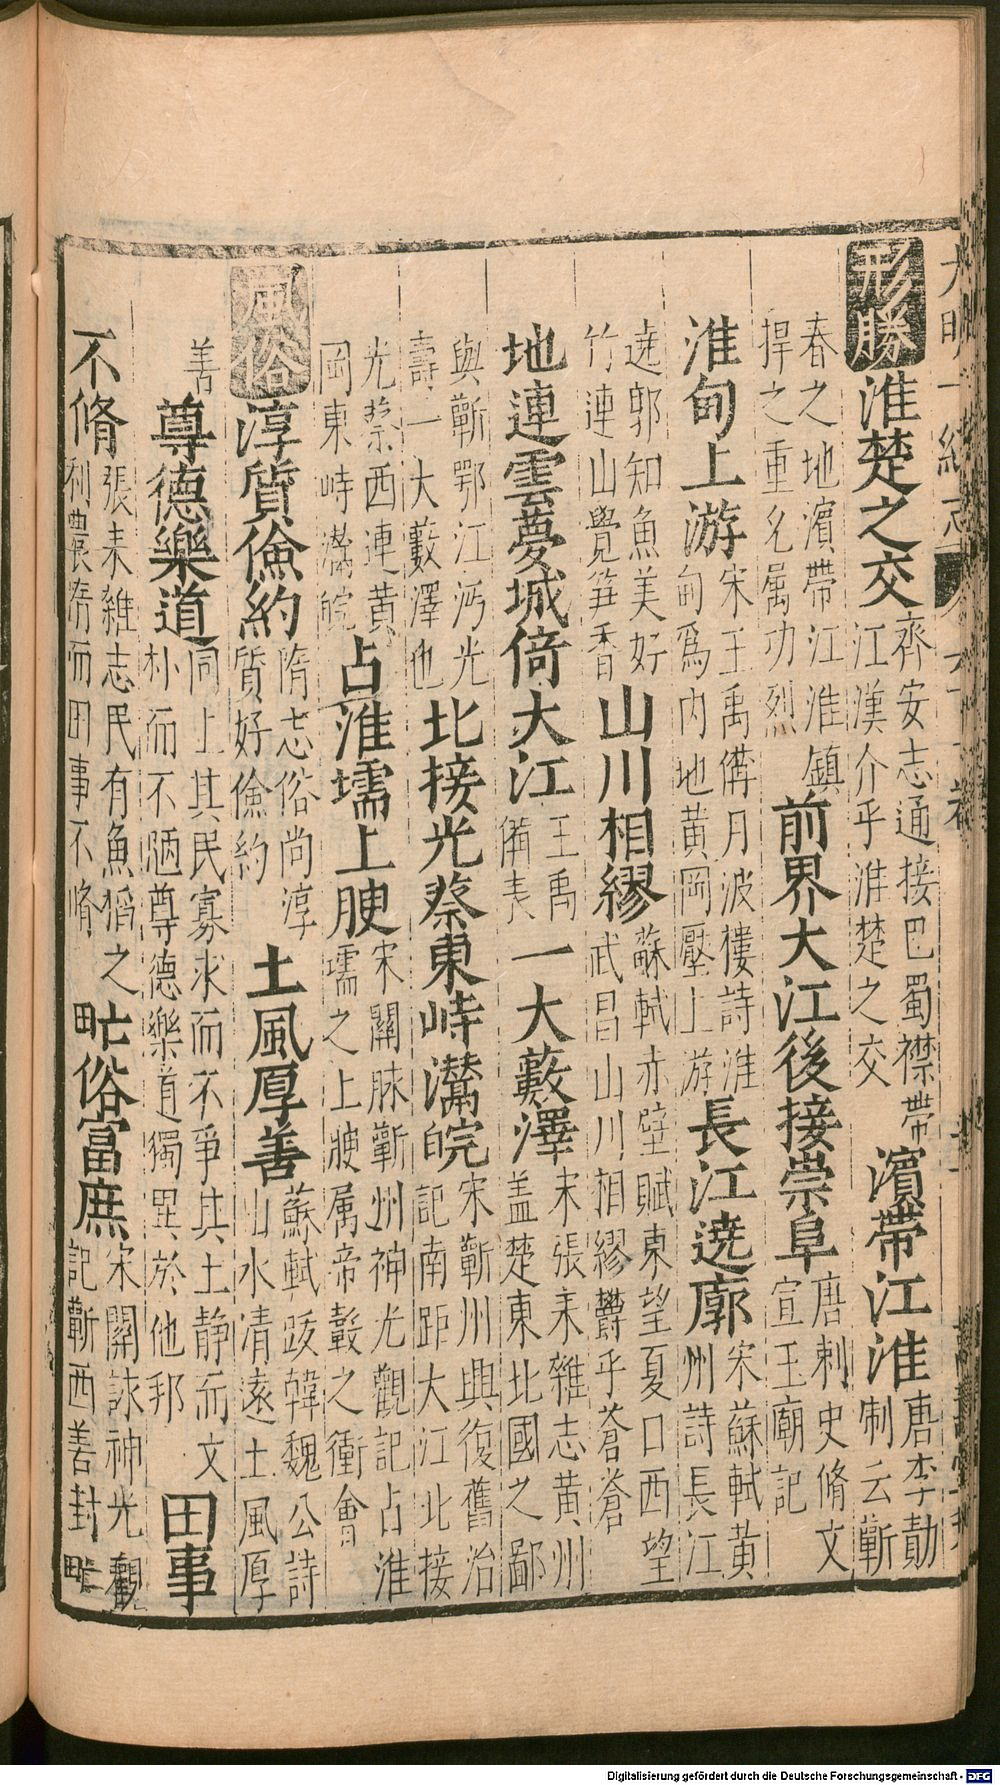 大明一統志
形勝 淮楚之交 齊安志通接巴蜀襟帶 江漢介乎淮楚之交 濵帶江淮 唐李勣 制云蘄
春之地濵帶江淮鎮 捍之重允属功烈 前界大江後接崇阜 唐刺史脩文 宣王廟記
淮甸上游 宋王禹偁月波樓詩淮 甸爲内地黄岡壓上游 長江遶廓 宋蘇軾黄 州詩長江
遶郭知魚美好 竹連山覺笋香 山川相繆 蘇軾赤壁賦東望夏口西望 武昌山川相繆欝乎蒼蒼
地連雲夢城倚大江 王禹 偁表 一大藪澤 宋張耒雜志黄州 盖楚東北國之鄙
與蘄鄂江沔光 壽一大藪澤也 北接光蔡東峙灊皖 宋蘄州興復舊治 記南距大江北接
光蔡西連黄 岡東峙灊皖 占淮壖上腴 宋關詠蘄州神光觀記占淮 壖之上腴属帝藪之衝會
風俗 淳質儉約 隋志俗尚淳 質好儉約 土風厚善 蘇軾跋韓魏公詩 山水清遠土風厚
善 尊德樂道 同上其民寡求而不爭其土静而文 朴而不陋尊德樂道獨異於他邦 田事
不脩 張耒雜志民有魚稻之 利農惰而田事不脩 甿俗富庶 宋關詠神光觀 記蘄西善封甿
Digitalisierung gefördert durch die Deutsche Forschungsgemeinschaft - DFG